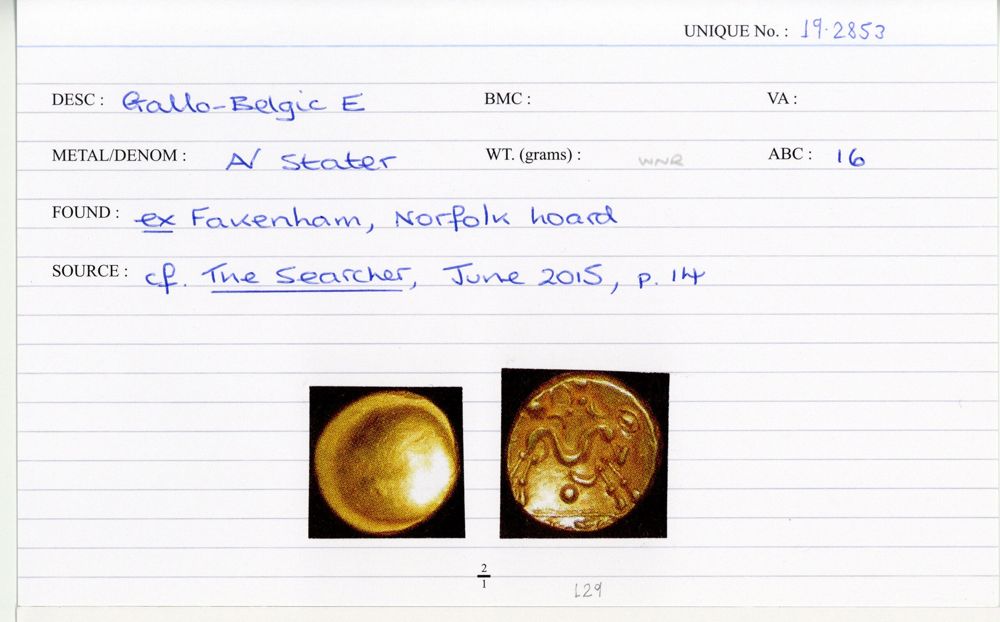 UNIQUE No. : 19.2853
DESC : Gallo-Belgic E BMC : VA :
METAL/DENOM : A/ Stater WT. (grams) : WNR ABC : 16
FOUND : ex Fakenham, Norfolk hoard
SOURCE : cf. The Searcher, June 2015, p. 14
2
1
L29